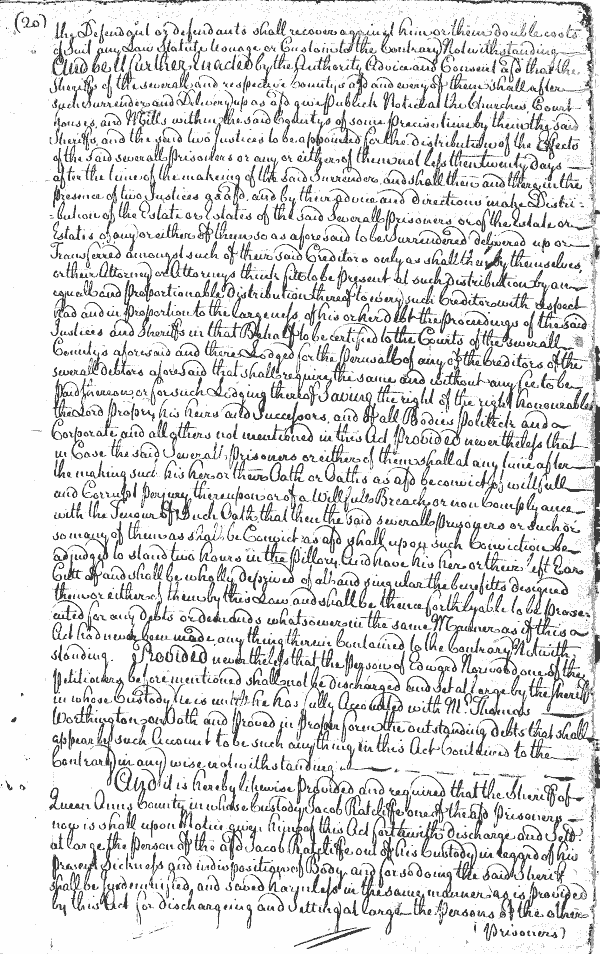 (20)
the Defendant or defendants shall recover against him or them double costs
of Suit any Law Statute Useage or Custom to the Contrary Notwithstanding
And be it further Enacted by the Authority Advice and Consent afd that the
Sheriffs of the severall and respective Countys afd and every of them shall after
such Surrender and Delivery up as afd give Publick Notice at the Churches Court
houses, and Mills within the said Countys of some precise time by them the said
Sheriffs, and the said two Justices to be appointed for the distribution of the Effects
of the said severall Prisoners or any or either of them not less then twenty days
after the time of the makeing of the said Surrender, and shall then and there in the
presence of two Justices as afd, and by their advice and directions make Distri-
-bution of the Estate or Estates of the said Severall Prisoners or of the Estate or
Estates of any or either of them so as aforesaid to be Surrendered delivered up or
Transferred amongst such of their said Creditors only as shall then by themselves
or their Attorney or Attorneys think fitt to be Present at such distribution by an
equall and Proportionable Distribution thereof to every such Creditor with respect
had and in proportion to the largeness of his or her debt the Proceedings of the said
Justices and Sheriffs in that Behalf to be certifyed to the Courts of the severall
Countys aforesaid and there Lodged for the Perusall of any of the Creditors of the
severall debtors aforesaid that shall require the same and without any fee to be
Paid thereon or for such Lodging thereof Saving the right of the right honourable
the Lord Propry his heirs and Successors, and of all Bodies Politick and
Corporate and all others not mentioned in this Act Provided nevertheless that
in Case the said Severall Prisoners or either of them shall at any time after
the making such his her or their Oath or Oaths as afd be convict of willfull
and Corrupt perjury thereupon or of a Willfull Breach or non Complyance
with the Tenour of Such Oath, that then the said severall Prisoners or such or
so many of them as shall be Convict as afd shall upon such Conviction be
adjudged to stand two hours in the Pillory And have his her or their left Ear
Cutt off and shall be wholly deprived of all and singular the benefitts designed
them or either of them by this Law and shall be thenceforth lyable to be Prose-
cuted for any debts or demands whatsoever in the same Manner as if this
Act had never been made any thing therein Contained to the Contrary Notwith
standing. Provided nevertheless that the Person of Edward Norwood one of the
Petitioners before mentioned shall not be discharged and set at Large by the Sheriff
in whose Custody he is untill he has fully Accounted with Mr Thomas
Worthington on Oath and Proved in Proper form the outstanding debts that shall
appear by such Account to be such any thing in this Act Contained to the
Contrary in any wise notwithstanding
And it is hereby likewise Provided and required that the Sheriff of
Queen Anns County in whose Custody Jacob Ratcliffe one of the afd Prisoners
now is shall upon Notice given him of this Act forthwith discharge and Sett
at large the Person of the afd Jacob Ratcliffe out of his Custody in regard of his
Present Sickness and indisposition of Body and for so doing the said Sheriff
shall be indemnified, and saved harmless in the same manner as is Provided
by this Act for dischargeing and Setting at large the Persons of the other
(Prisoners)